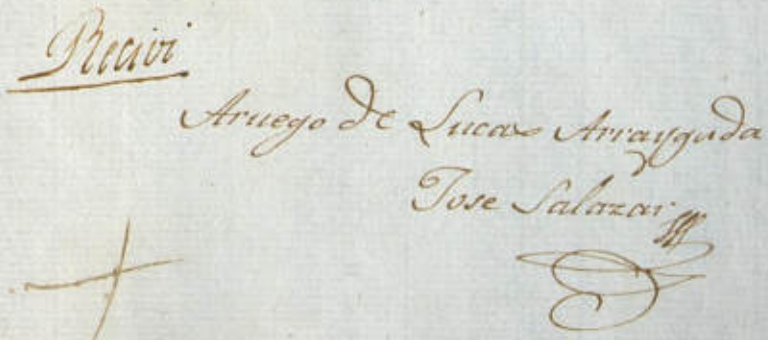 Recivi
Aruego de Lucas Arrayguda
Jose Salazar